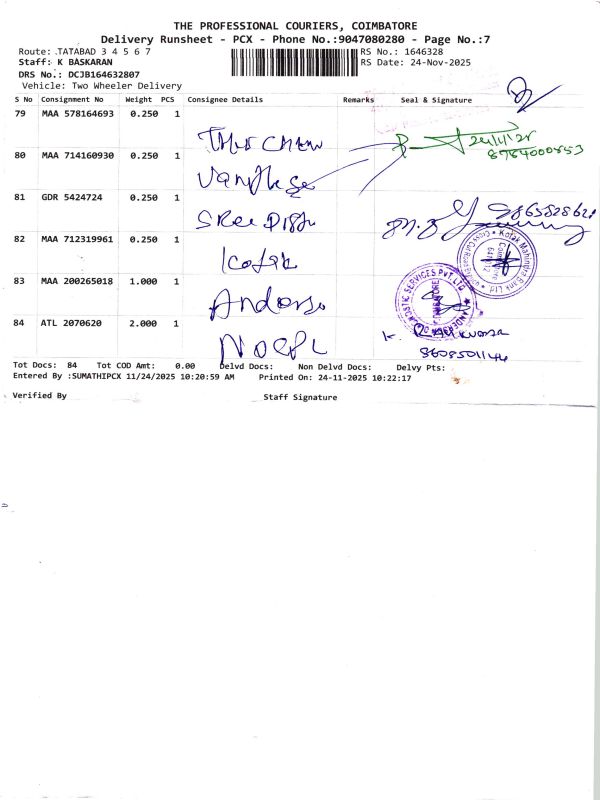 THE PROFESSIONAL COURIERS, COIMBATORE
Delivery Runsheet - PCX - Phone No.:9047080280 - Page No.:7
Route: TATABAD 3 4 5 6 7 RS No.: 1646328
Staff: K BASKARAN RS Date: 24-Nov-2025
DRS No.: DCJB164632807
Vehicle: Two Wheeler Delivery
S No Consignment No Weight PCS Consignee Details Remarks Seal & Signature
79 MAA 578164693 0.250 1
80 MAA 714160930 0.250 1
8764000553
81 GDR 5424724 0.250 1
9865828621
82 MAA 712319961 0.250 1 Kotak
Kotak Mahindra Bank Ltd
83 MAA 200265018 1.000 1
84 ATL 2070620 2.000 1
8608501144
Tot Docs: 84 Tot COD Amt: 0.00 Delvd Docs: Non Delvd Docs: Delvy Pts:
Entered By :SUMATHIPCX 11/24/2025 10:20:59 AM Printed On: 24-11-2025 10:22:17
Verified By Staff Signature